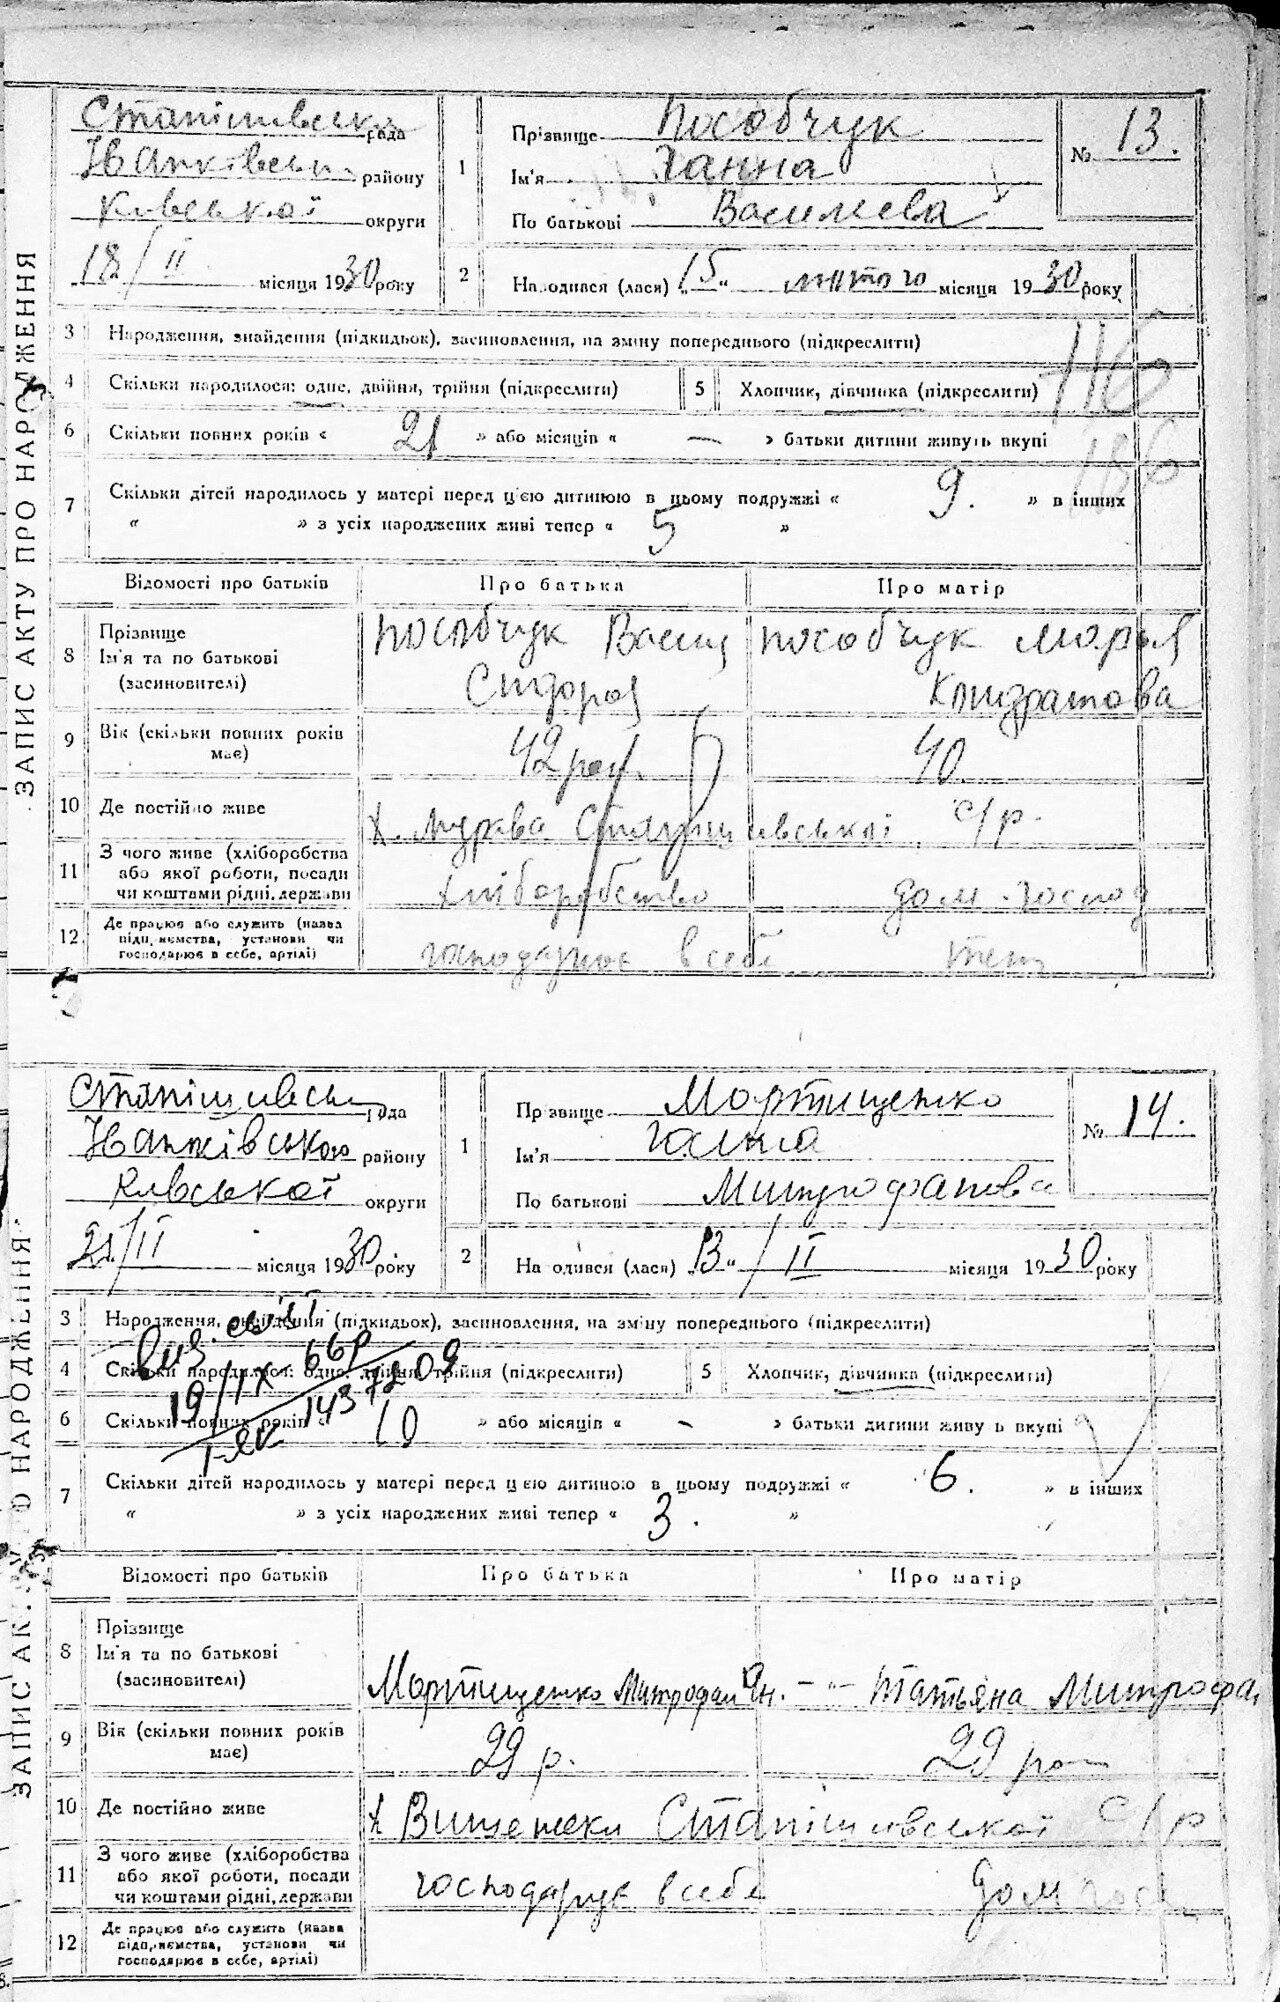 ЗАПИС АКТУ ПРО НАРОДЖЕННЯ
Станішивська рада
Іванківськ. району
Київської округи
18/II місяця 1930 року
1
Прізвище Пособчук
Ім'я Ганна
По батькові Василева
№ 13.
2
Народився (лася) „15" лютого місяця 1930 року
3 Народження, знайдення (підкидьок), засиновлення, на зміну попереднього (підкреслити)
4 Скільки народилося: одне, двійня, трійня (підкреслити) 5 Хлопчик, дівчинка (підкреслити)
116
186
6 Скільки повних років « 21 » або місяців « — » батьки дитини живуть вкупі
7 Скільки дітей народилось у матері перед цією дитиною в цьому подружжі « 9. » в інших
« » з усіх народжених живі тепер « 5 »
Відомості про батьків Про батька Про матір
8 Прізвище
Ім'я та по батькові
(засиновителі)
Пособчук Васил
Сидоров
Пособчук Марья
Кондратова
9 Вік (скільки повних років має) 42 рок. 40
10 Де постійно живе х. Мурква Станішивської с/р.
11 З чого живе (хліборобства
або якої роботи, посади
чи коштами рідні, держави
хліборобство дом. господ
12 Де працює або служить (назва
підприємства, установи чи
господарює в себе, артілі)
господарює в себе теж
ЗАПИС АКТУ ПРО НАРОДЖЕННЯ
Станішивськ рада
Іванківською району
Київської округи
21/II місяця 1930 року
1
Прізвище Мортищенко
Ім'я Галина
По батькові Митрофанова
№ 14.
2
Народився (лася) „13" / II місяця 1930 року
3 Народження, знайдення (підкидьок), засиновлення, на зміну попереднього (підкреслити)
4 Скільки народилося: одне, двійня, трійня (підкреслити) 5 Хлопчик, дівчинка (підкреслити)
19/IX 66р
1437209
6 Скільки повних років « 10 » або місяців « - » батьки дитини живуть вкупі
7 Скільки дітей народилось у матері перед цією дитиною в цьому подружжі « 6. » в інших
« » з усіх народжених живі тепер « 3. »
Відомості про батьків Про батька Про матір
8 Прізвище
Ім'я та по батькові
(засиновителі)
Мортищенко Митрофан Ян. -"- Татьяна Митрофа
9 Вік (скільки повних років має) 29 р. 29 рок
10 Де постійно живе х Вишеньки Станішивської с/р
11 З чого живе (хліборобства
або якої роботи, посади
чи коштами рідні, держави
господарує в себе дом госп
12 Де працює або служить (назва
підприємства, установи чи
господарює в себе, артілі)